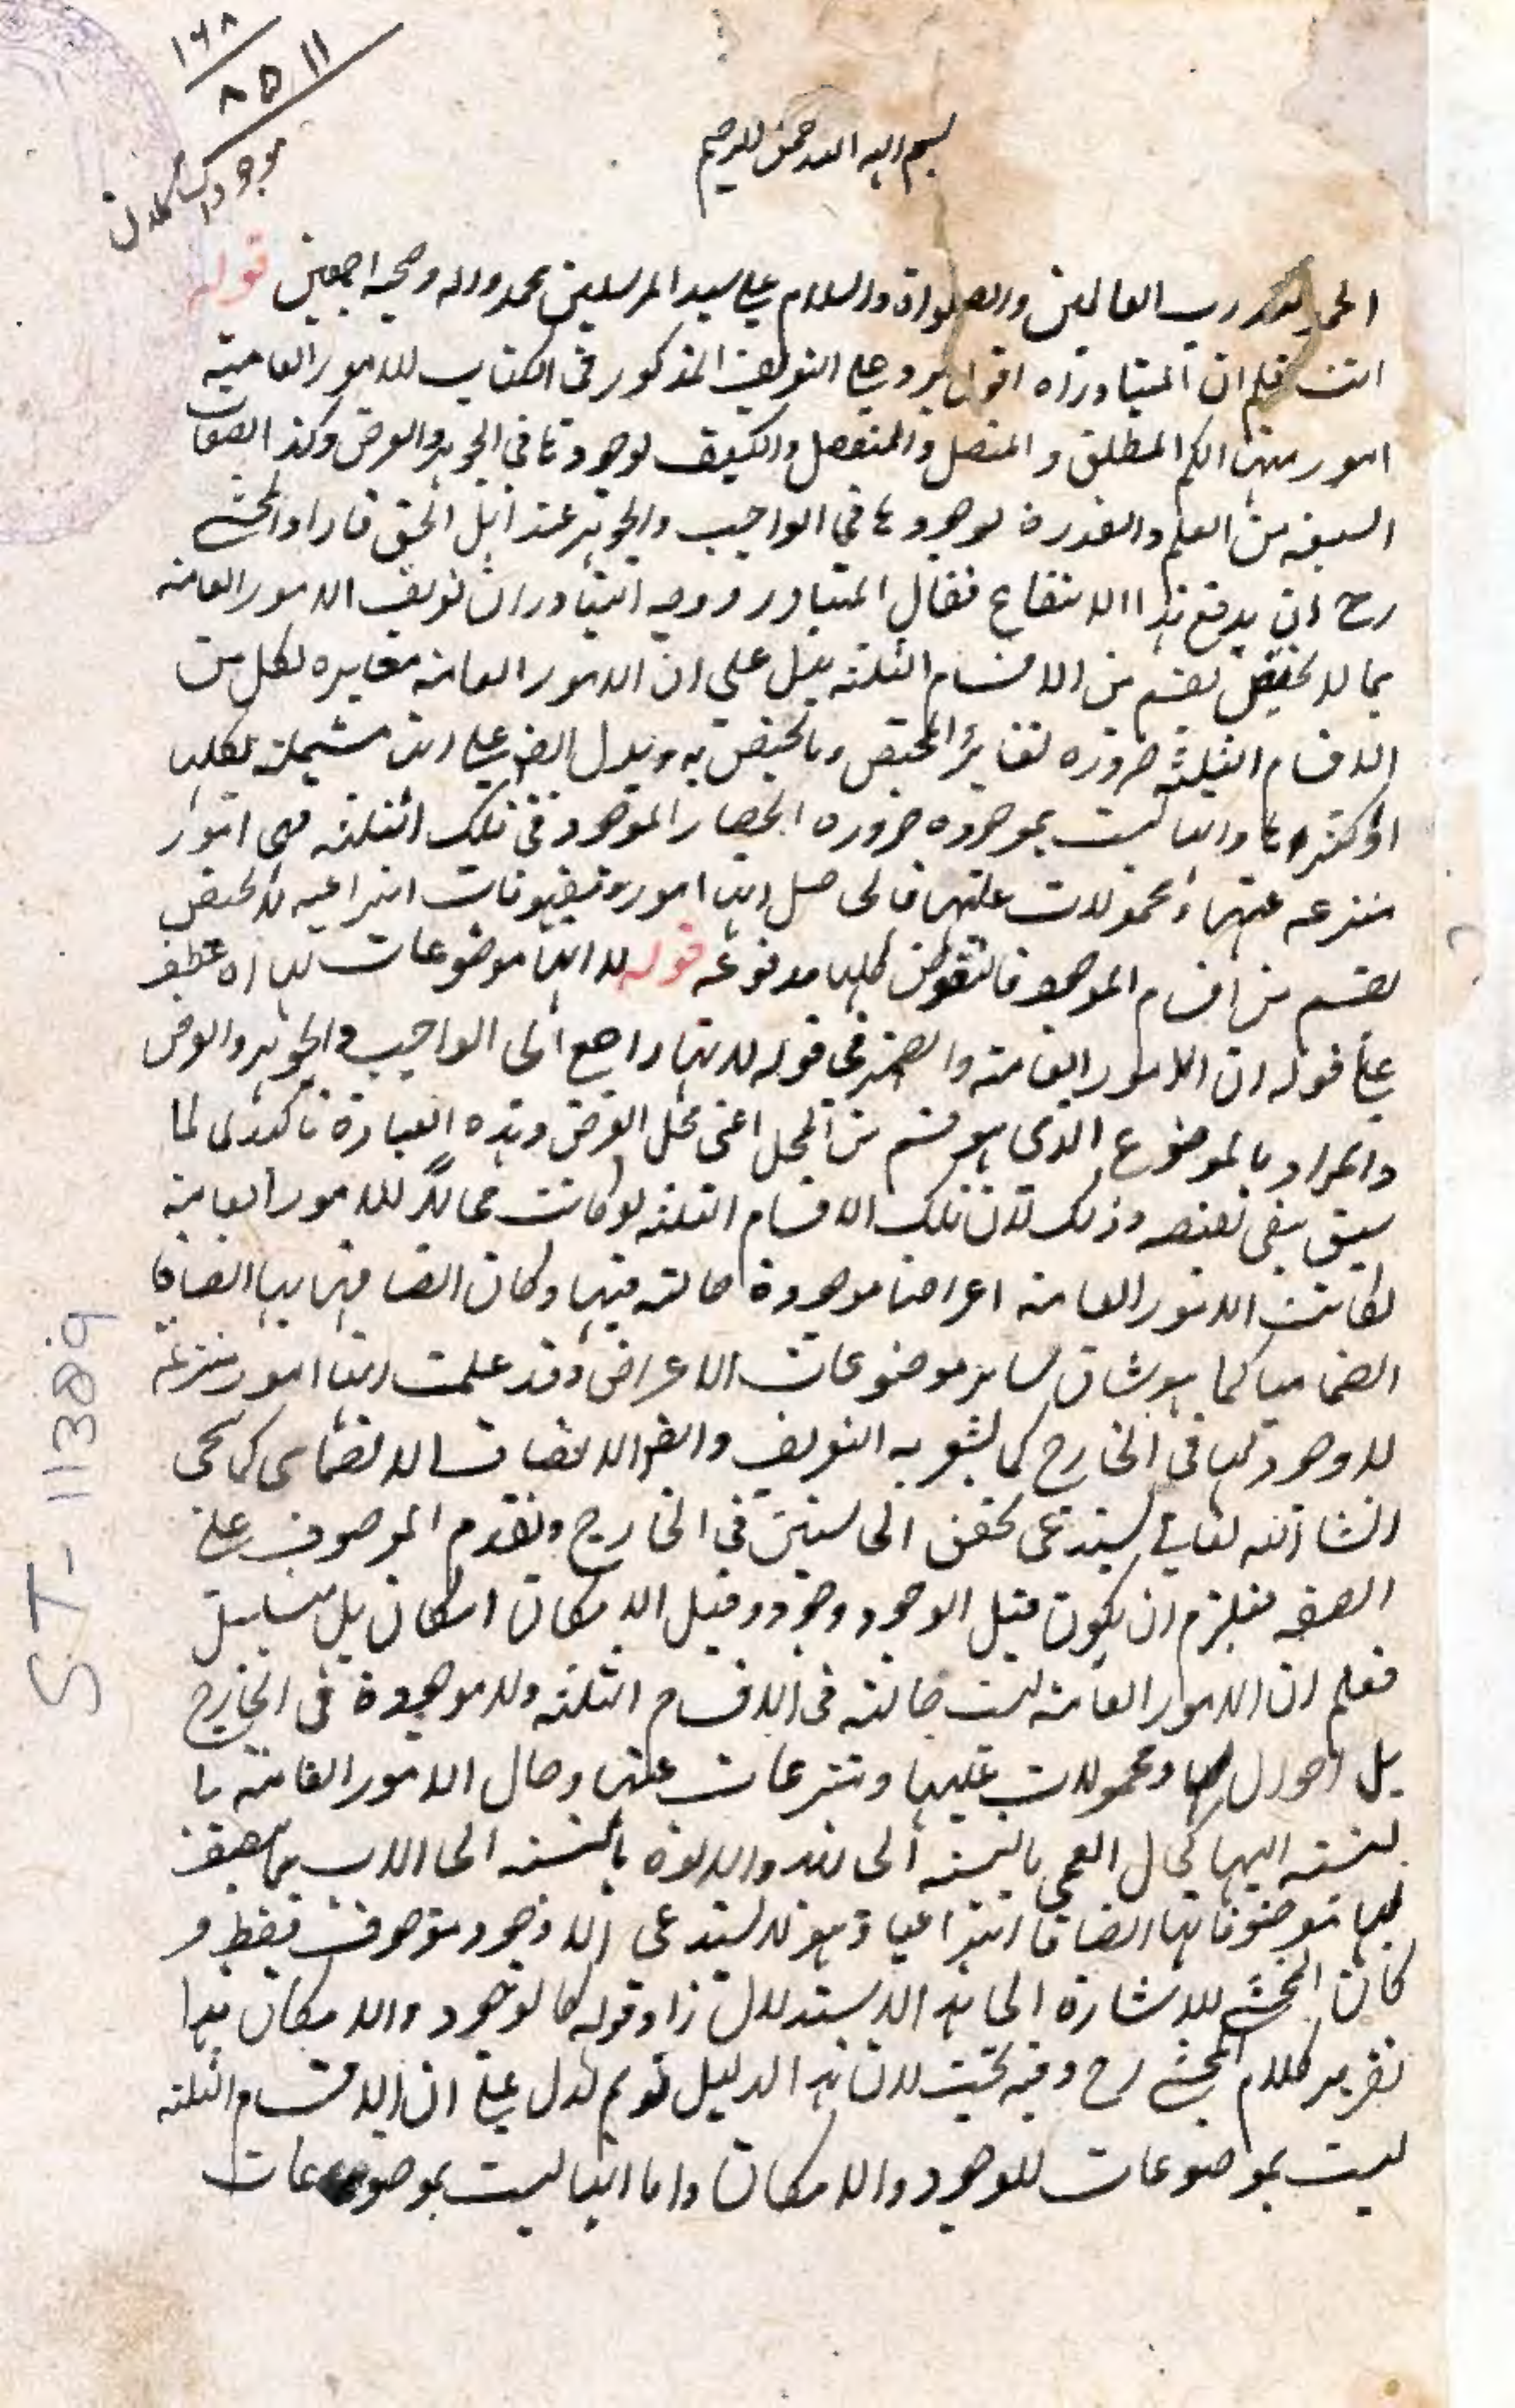 ١٦٨
٨٥١١
بسم الله الرحمن الرحيم
الحمد لله رب العالمين والصلواة والسلام على سيد المرسلين محمد واله وصحبه اجمعين قوله
انت تعلم ان المتبادر اه اقول يرد على التعريف المذكور في الكتاب للامور العامة
امور منها الكم المطلق والمتصل والمنفصل والكيف لوجودها في الجوهر والعرض وكذا الصفات
السبعة من العلم والقدرة لوجودها في الواجب والجوهر عند اهل الحق فاراد المحشي
رح ان يدفع هذا الانتقاع فقال المتبادر ووجه التبادر ان تعريف الامور العامة
بما لا يختص بقسم من الاقسام الثلثة يدل على ان الامور العامة مغايرة لكل من
الاقسام الثلثة ضرورة تغاير المختص وما يختص به ويدل ايضا على انها مشتملة لكلها
او اكثرها وانها ليست بموجودة ضرورة انحصار الموجود في تلك الثلثة فهي امور
منتزعة عنها ومحمولات عليها فالحاصل انها امور ومفهومات انتزاعية لا يختص
بقسم من اقسام الموجود فالنقوض كلها مدفوعة قوله لا انها موضوعات لها اه عطف
على قوله ان الامور العامة والضمير في قوله لا انها راجع الى الواجب والجوهر والعرض
والمراد بالموضوع الذي هو قسم من المحل اعني محل العرض وهذه العبارة تاكيد لما
سبق بنفي نقيضه وذلك لان تلك الاقسام الثلثة لو كانت محالا للامور العامة
لكانت الامور العامة اعراضا موجودة حالة فيها وكان اتصافها بها اتصافا
انضماميا كما هو شان ساير موضوعات الاعراض وقد علمت انها امور منتزعة
لا وجود لها في الخارج كما يشعر به التعريف وايضا الاتصاف الانضمامي كما سيجي
انشا الله تعالى يستدعي تحقق الحاشيتين في الخارج وتقدم الموصوف على
الصفة فيلزم ان يكون قبل الوجود وجود وقبل الامكان امكان بل سلسل
فعلم ان الامور العامة ليست حالة في الاقسام الثلثة ولا موجودة في الخارج
بل احوال لها ومحمولات عليها ومنتزعات عنها وحال الامور العامة با
لنسبة اليها كحال العمى بالنسبة الى زيد والابوة بالنسبة الى الاب مما يتصف
بها موضوعاتها اتصافا انتزاعيا وهو لا يستدعي الا وجود موصوف فقط و
كان المحشي للاشارة الى هذا الاستدلال زاد قوله كالوجود والامكان هذا
تقرير كلام المحشي رح وفيه بحث لان هذا الدليل لو تم لدل على ان الاقسام الثلثة
ليست بموضوعات للوجود والامكان واما انها ليست بموضوعات
ST-11389